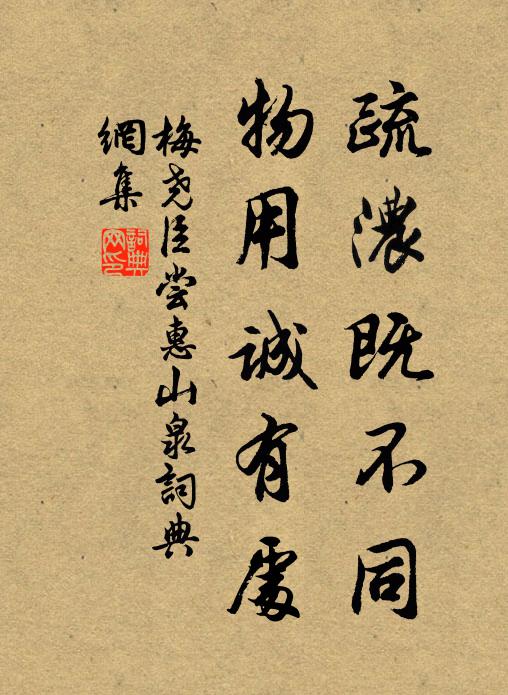 疏濃既不同
物用誠有處
梅堯臣嘗惠山泉詞典
網集
詞典
网印